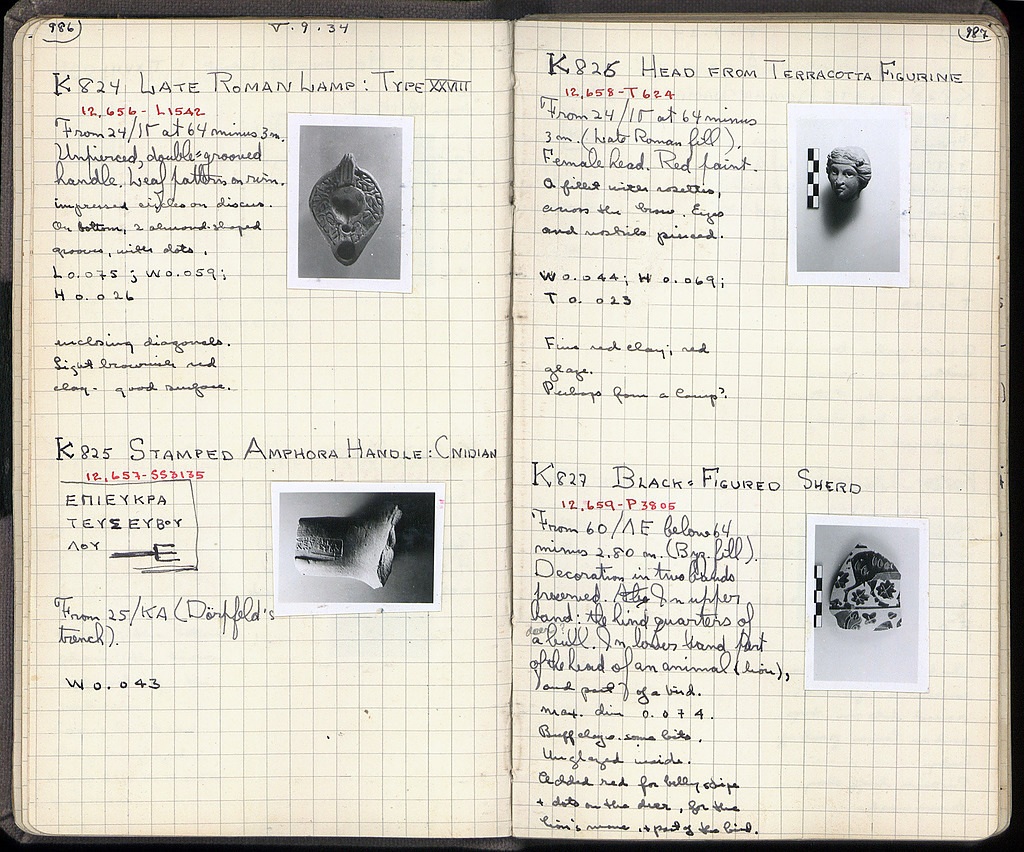 986
V.9.34
K 824 LATE ROMAN LAMP: TYPE XXVIII
12,656 - L1542
From 24/ΙΓ at 64 minus 3m.
Unpierced, double-grooved
handle. Leaf pattern on rim.
impressed circles on discus.
On bottom, 2 almond-shaped
grooves, with dots.
L 0.075; W 0.059;
H 0.026
enclosing diagonals.
Light brownish red
clay - good surface.
K 825 STAMPED AMPHORA HANDLE: CNIDIAN
12,657-SS3135
ΕΠΙΕΥΚΡΑ
ΤΕΥΣ ΕΥΒΟΥ
ΛΟΥ
From 25/ΚΑ (Dörpfeld's
trench).
W 0.043
987
K 826 HEAD FROM TERRACOTTA FIGURINE
12,658-T624
From 24/ΙΓ at 64 minus
3m. (Late Roman fill).
Female head. Red paint.
A fillet with rosettes,
across the brow. Eyes
and nostrils pierced.
W 0.044; H 0.069;
T 0.023
Fine red clay; red
glaze.
Perhaps from a lamp?
K 827 BLACK-FIGURED SHERD
12,659-P3805
From 60/ΛΕ below 64
minus 2.80 m. (Byz. fill).
Decoration in two bands
preserved. In upper
band: the hind quarters of
deer?
a bull. In lower band part
of the head of an animal (lion),
and part of a bird.
max. dim 0.074.
Buff clay. some bits.
Unglazed inside.
Added red for belly stripe
+ dots on the deer, for the
lion's mane, + part of the bird.